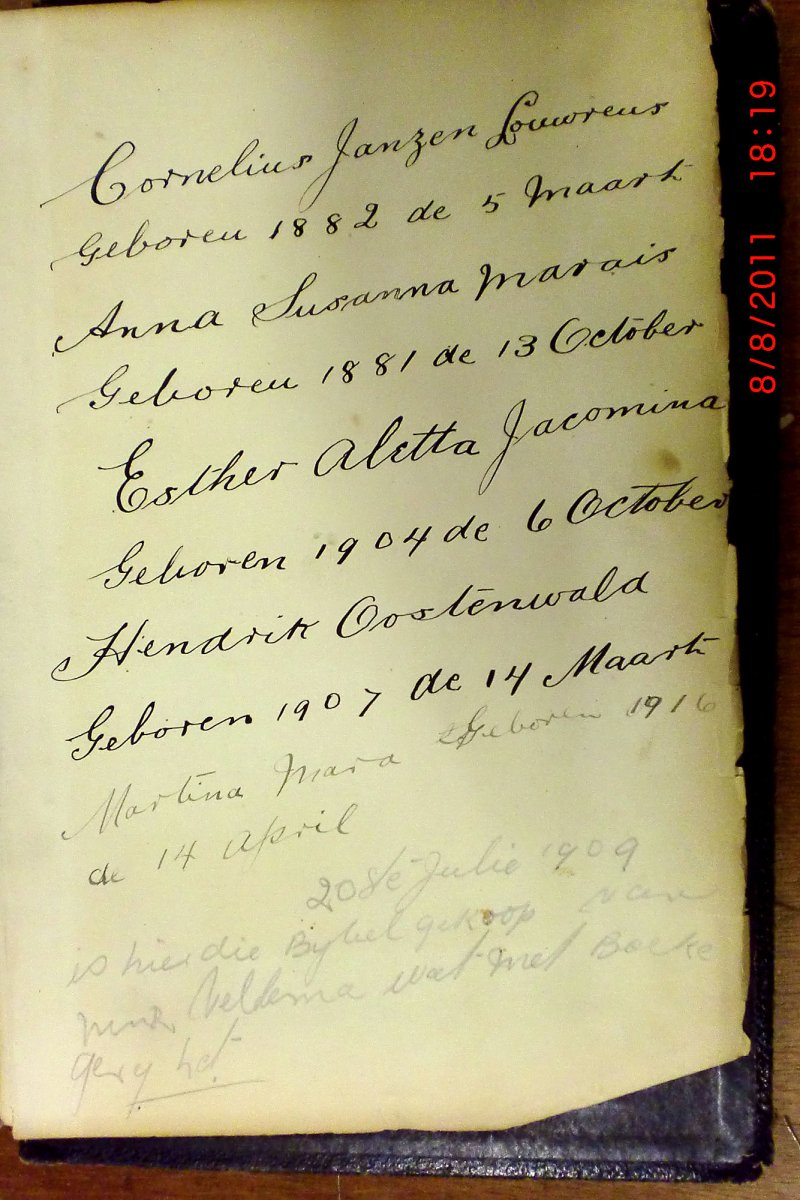 Cornelius Janzen Louwrens
Geboren 1882 de 5 Maart
Anna Susanna Marais
Geboren 1881 de 13 October
Esther Aletta Jacomina
Geboren 1904 de 6 October
Hendrik Oostenwald
Geboren 1907 de 14 Maart
Martina Mara Geboren 1916
de 14 April
20ste Julie 1909
is hierdie Bybel gekoop van
Veldema wat met Boeke
gery het
8/8/2011 18:19